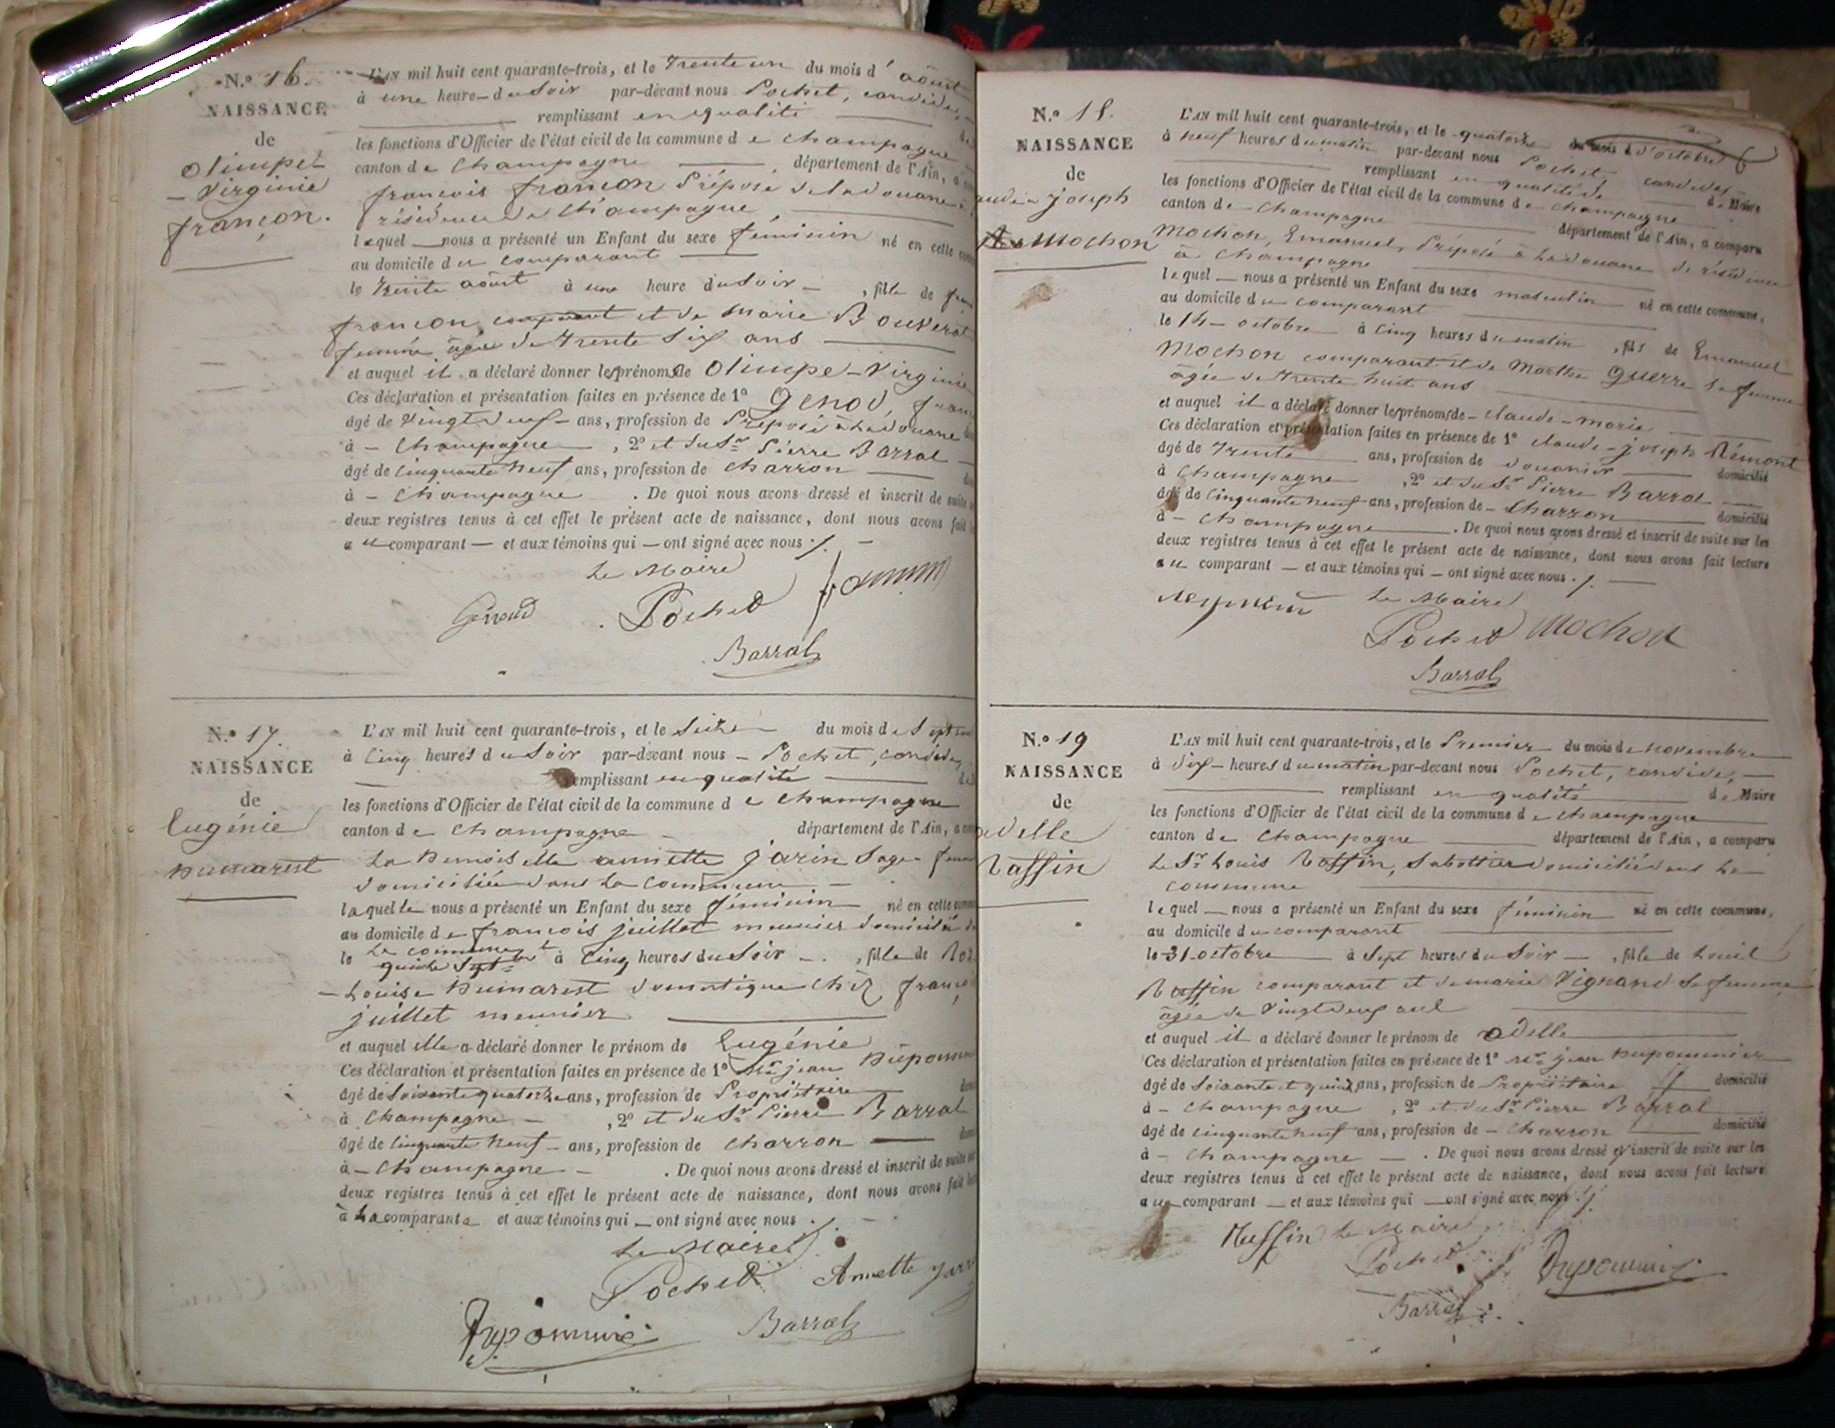 N.º 16.
NAISSANCE
de
Olimpe
Virginie
françon.
L'AN mil huit cent quarante-trois, et le trente un du mois d' août
à une heure du Soir par-devant nous Pochet, candide,
remplissant en qualité
les fonctions d'Officier de l'état civil de la commune de Champagne
canton de Champagne, département de l'Ain, a
françois françon Préposé de la douane
résidence de Champagne
lequel nous a présenté un Enfant du sexe féminin né en cette
au domicile du comparant
le trente août à une heure du Soir, fille de
françon, comparant et de Marie Bouverat
femme âgée de trente Six ans
et auquel il a déclaré donner les prénoms de Olimpe-Virginie
Ces déclaration et présentation faites en présence de 1º Genod,
âgé de Vingt neuf ans, profession de Préposé à la douane
à Champagne, 2º et du Sr Pierre Barral
âgé de cinquante neuf ans, profession de charron
à Champagne. De quoi nous avons dressé et inscrit de suite
deux registres tenus à cet effet le présent acte de naissance, dont nous avons fait
au comparant et aux témoins qui ont signé avec nous ./.
Le Maire
Pochet
Barral
N.º 17.
NAISSANCE
de
Eugénie
Dumarest
L'AN mil huit cent quarante-trois, et le Seize du mois de Sept
à Cinq heures du Soir par-devant nous Pochet, candide,
remplissant en qualité
les fonctions d'Officier de l'état civil de la commune de Champagne
canton de Champagne département de l'Ain, a
La Demoiselle annette Jarin Sage femme
domiciliée dans la commune
laquelle nous a présenté un Enfant du sexe féminin né en cette
au domicile de françois juillet meunier domicilié
la commune
le quinze Sept à Cinq heures du Soir, fille de
Louise Dumarest domestique chez
juillet meunier
et auquel elle a déclaré donner le prénom de Eugénie
Ces déclaration et présentation faites en présence de 1º Mr jean
âgé de Soixante quatorze ans, profession de Propriétaire
à Champagne, 2º et du Sr Pierre Barral
âgé de Cinquante Neuf ans, profession de charron
à Champagne. De quoi nous avons dressé et inscrit de suite
deux registres tenus à cet effet le présent acte de naissance, dont nous avons fait
à La comparante et aux témoins qui ont signé avec nous ./.
Le Maire
Pochet Annette
Barral
N.º 18.
NAISSANCE
de
Joseph
Mochon
L'AN mil huit cent quarante-trois, et le quatorze du mois d'octobre
à neuf heures du matin par-devant nous Pochet candide,
remplissant en qualité de Maire
les fonctions d'Officier de l'état civil de la commune de Champagne
canton de Champagne département de l'Ain, a comparu
Mochon, Emanuel, Préposé à la douane de résidence
à Champagne
lequel nous a présenté un Enfant du sexe masculin né en cette commune,
au domicile du comparant
le 14 octobre à Cinq heures du matin, fils de Emanuel
Mochon comparant et de Marthe Guerre Sa femme
âgée de trente huit ans
et auquel il a déclaré donner les prénoms de claude-marie
Ces déclaration et présentation faites en présence de 1º claude-joseph Rémont
âgé de Trente ans, profession de douanier domicilié
à Champagne, 2º et du Sr Pierre Barral
âgé de Cinquante neuf ans, profession de Charron domicilié
à Champagne. De quoi nous avons dressé et inscrit de suite sur les
deux registres tenus à cet effet le présent acte de naissance, dont nous avons fait lecture
au comparant et aux témoins qui ont signé avec nous ./.
Le Maire
Pochet Mochon
Barral
N.º 19
NAISSANCE
de
L'AN mil huit cent quarante-trois, et le Premier du mois de novembre
à dix heures du matin par-devant nous Pochet, candide,
remplissant en qualité de Maire
les fonctions d'Officier de l'état civil de la commune de Champagne
canton de Champagne département de l'Ain, a comparu
Le Sr Louis Sabottier domicilié dans la
commune
lequel nous a présenté un Enfant du sexe féminin né en cette commune,
au domicile du comparant
le 31 octobre à Sept heures du Soir, fille de Louis
comparant et de marie Vignand Sa femme
âgée de Vingt neuf ans
et auquel il a déclaré donner le prénom de adelle
Ces déclaration et présentation faites en présence de 1º Mr jean Dupommier
âgé de Soixante et quinze ans, profession de Propriétaire domicilié
à Champagne, 2º et du Sr Pierre Barral
âgé de cinquante neuf ans, profession de Charron domicilié
à Champagne. De quoi nous avons dressé et inscrit de suite sur les
deux registres tenus à cet effet le présent acte de naissance, dont nous avons fait lecture
au comparant et aux témoins qui ont signé avec nous ./.
Le Maire
Pochet
Barral